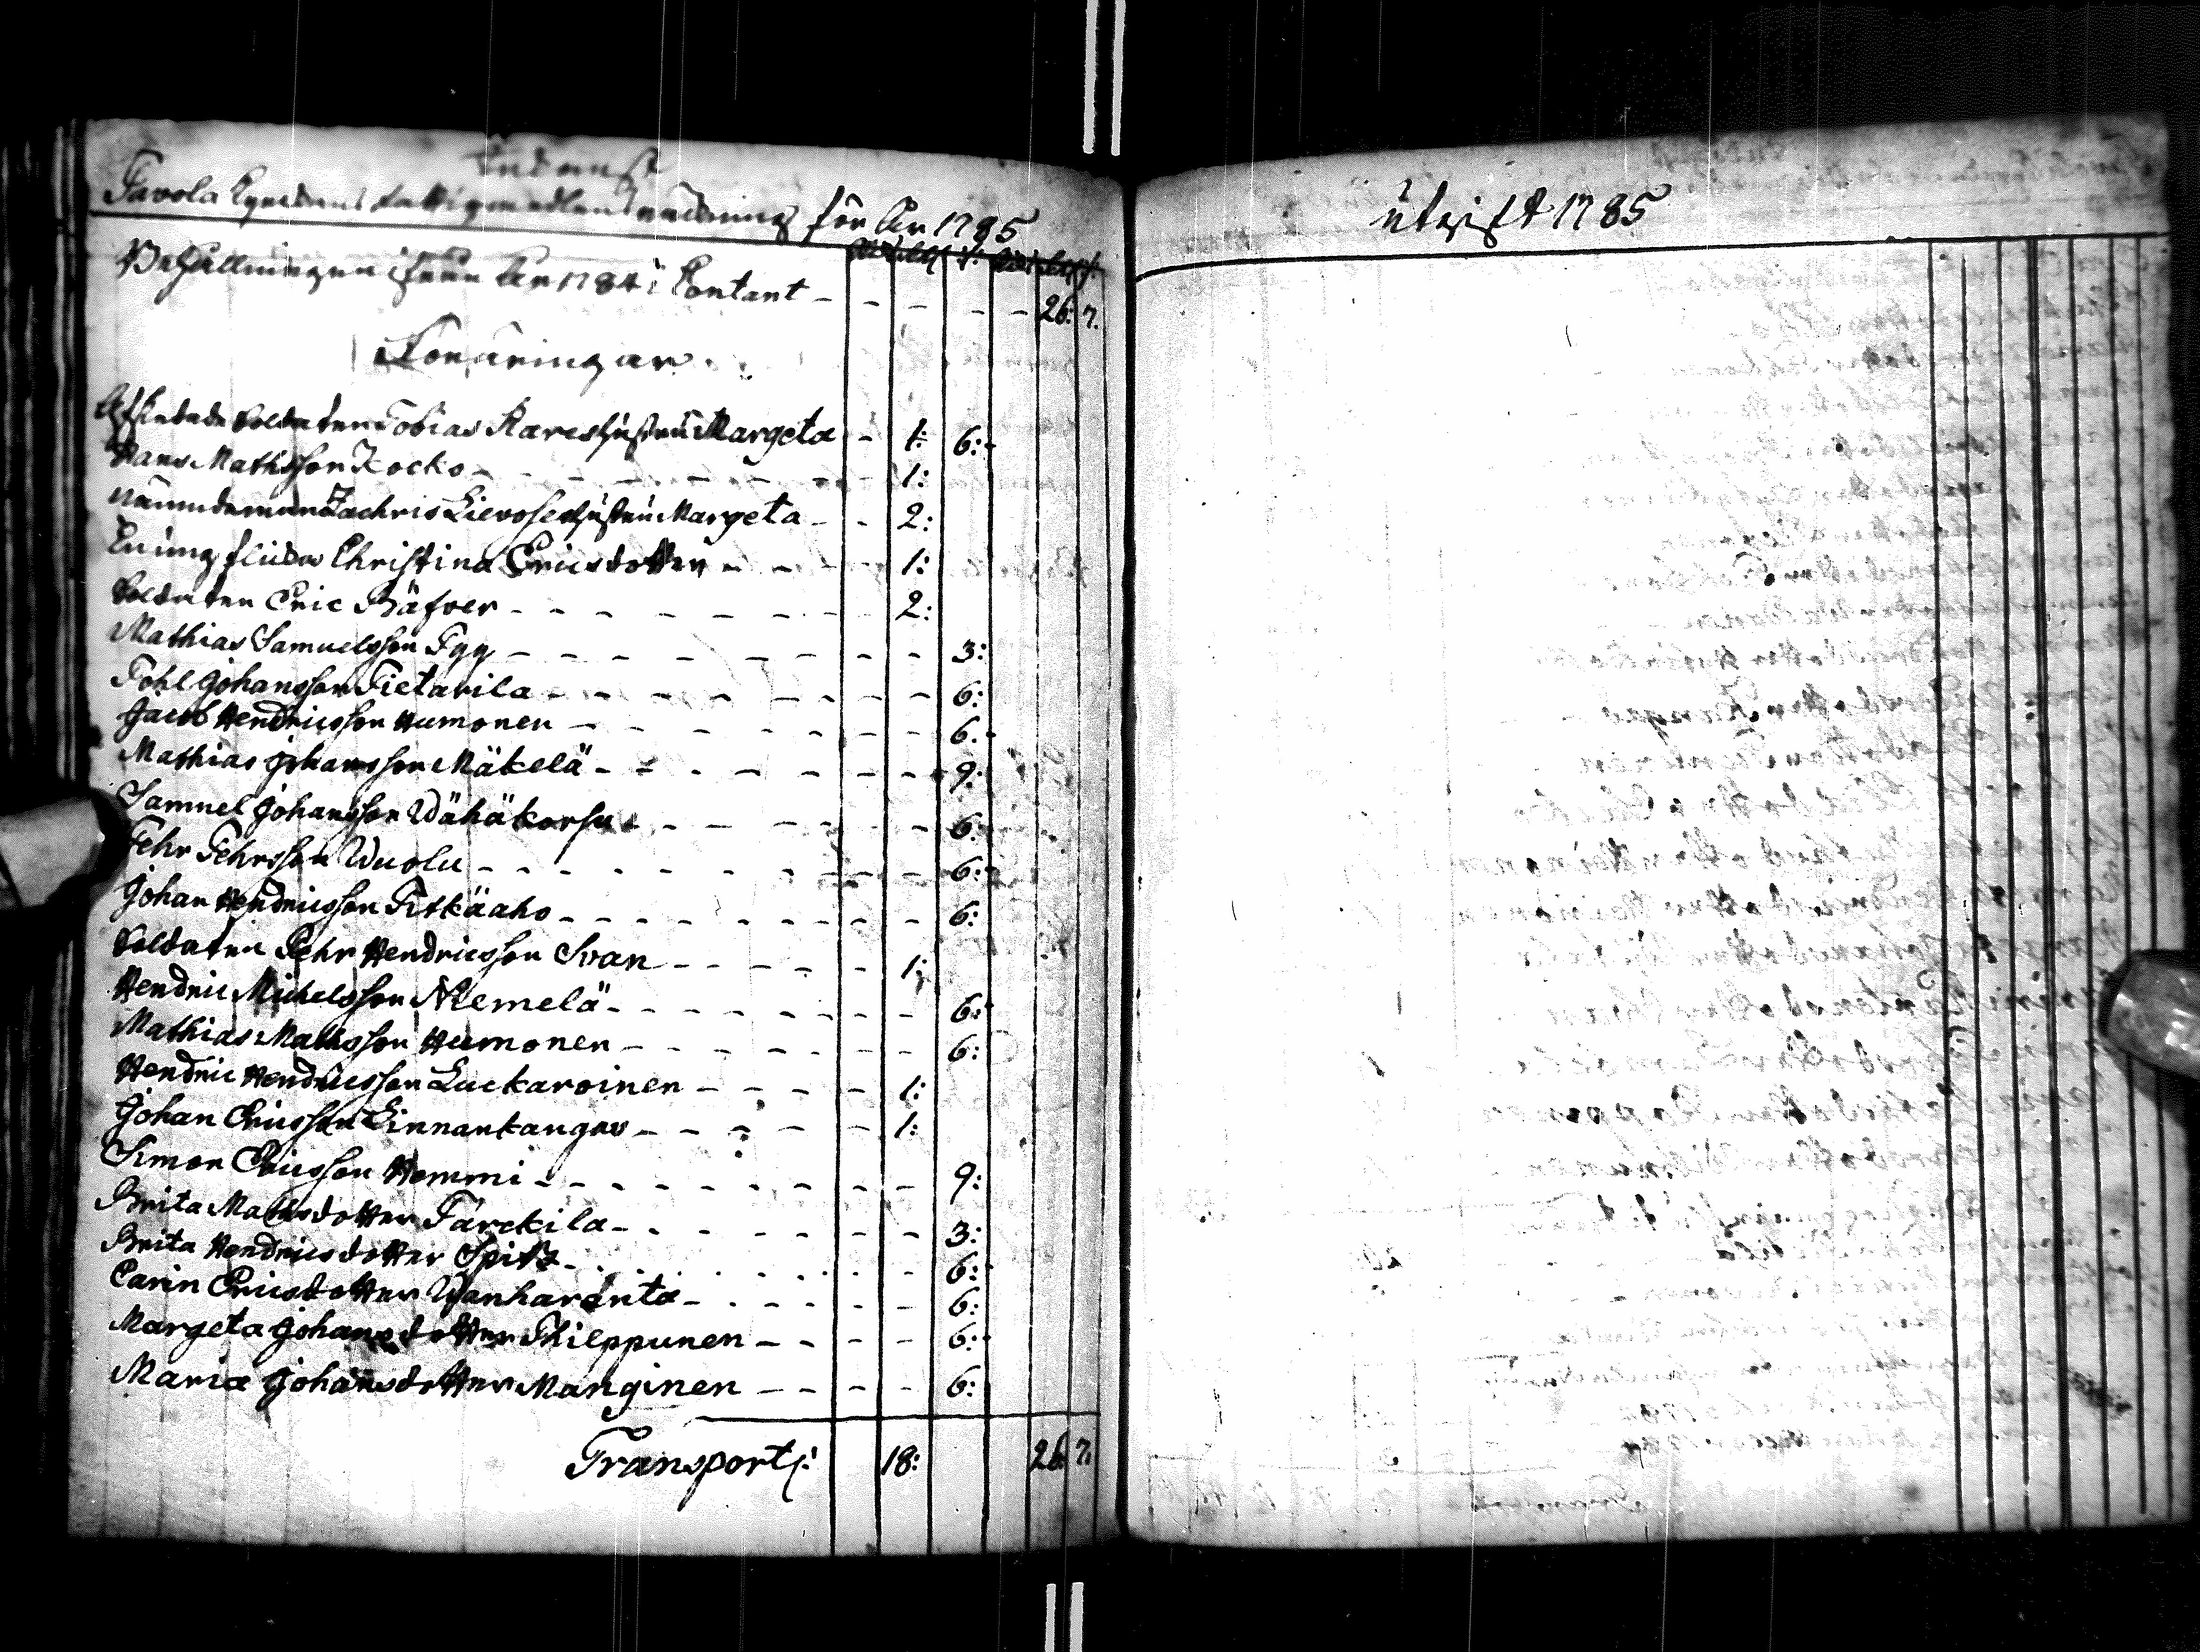 Pavola Kyrckans fattigmedlens räckning för År 1785
Behållningen ifrån År 1784 i Contant - - - - - 26: 7.
Foräringar.
Afskedade Soldaten Tobias Kares hustru Margeta - 1: 6:
Hans Mathsson Kocko - - - 1:
Nämndeman Zachris Lievosen hustru Margeta - - 2:
En ung flicka Christina Ericsdotter - - - 1:
Soldaten Eric Bäfver - - - 2:
Mathias Samuelsson Pyy - - - 3:
Pohl Johansson Pietarila - - - 6:
Jacob Hendricsson Humonen - - - 6:
Mathias Johansson Mäkelä - - - 9:
Samuel Johansson Wähäkorsu - - - 6:
Pehr Pehrsson Wuolu - - - 6:
Johan Hendricsson Pitkäaho - - - 6:
Soldaten Pehr Hendricsson Svan - - - 1:
Hendric Michelsson Niemelä - - - 6:
Mathias Mathsson Humonen - - - 6:
Hendric Hendricsson Luckaroinen - - - 1:
Johan Ericsson Linnankangas - - - 1:
Simon Ericsson Hemmi - - - 9:
Brita Mathsdotter Tärckila - - - 3:
Brita Hendricsdotter Spitz - - - 6:
Carin Ericsdotter Wanharanta - - - 6:
Margeta Johansdotter Philppunen - - - 6:
Maria Johansdotter Manginen - - - 6:
Transport 18: 26: 7:
utgift 1785